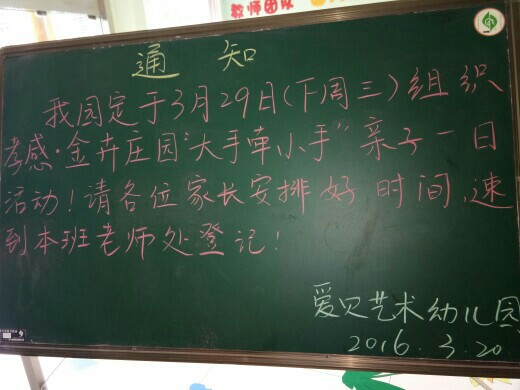 教师团队
通 知
我园定于3月29日(下周三)组织
孝感·金卉庄园"大手牵小手"亲子一日
活动!请各位家长安排好时间,速
到本班老师处登记!
爱贝艺术幼儿园
2016.3.20